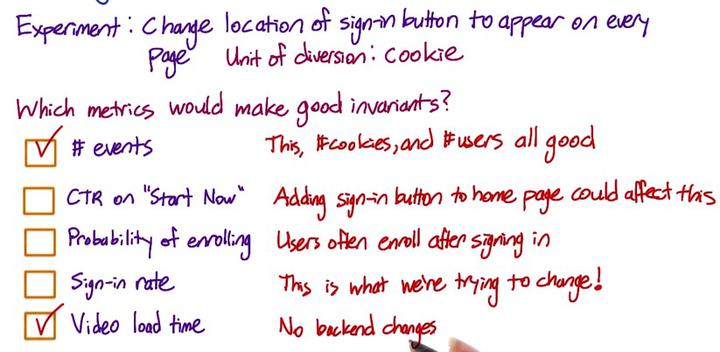 Experiment: Change location of sign-in button to appear on every
page Unit of diversion: Cookie
Which metrics would make good invariants?
# events This, #cookies, and #users all good
CTR on "Start Now" Adding sign-in button to home page could affect this
Probability of enrolling Users often enroll after signing in
Sign-in rate This is what we're trying to change!
Video load time No backend changes